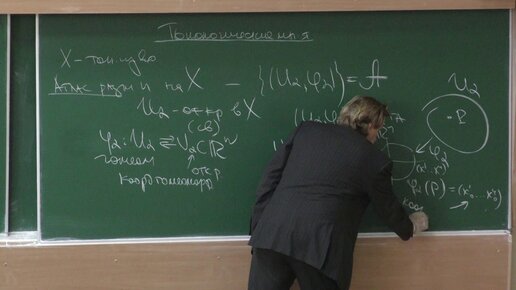 Топологические мн-я
X - топ. пр-во
Атлас разм n на X - {(U_α, φ_α)} = A
U_α - откр в X
(св)
φ_α: U_α ⇄ V_α ⊂ ℝⁿ
гомеом
откр
коорд гомеоморф
U_α
P
φ_α
φ_α(P) = (x¹₀...xⁿ₀)
коор